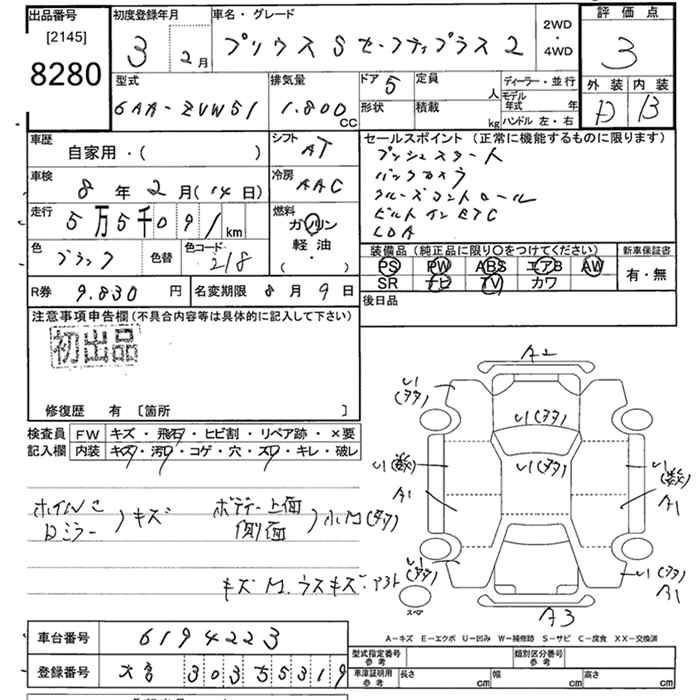 出品番号 初度登録年月 車名・グレード 2WD・4WD 評価点
[2145] 3 2月 プリウス S セーフティプラス 2 3
8280
型式 排気量 ドア 5 定員 人 ディーラー・並行 外装 内装
6AA-ZVW51 1.800 CC 形状 積載 kg モデル年式 年 D B
ハンドル 左・右
車歴 自家用・( ) シフト AT セールスポイント (正常に機能するものに限ります)
プッシュスタート
車検 8年2月(14日) 冷房 AAC バックカメラ
クルーズコントロール
走行 5万5千091km 燃料 ガソリン ビルトインETC
軽油 LDA
色 ブラック 色替 色コード 218 ( ・ ) 装備品 (純正品に限り〇をつけてください) 新車保証書
PS PW ABS エアB AW 有・無
SR ナビ TV カワ
R券 9.830円 名変期限 8月9日 後日品
注意事項申告欄(不具合内容等は具体的に記入して下さい)
初出品
修復歴 有 [箇所 ]
検査員 FW キズ・飛石・ヒビ割・リペア跡・×要
記入欄 内装 キズ・汚れ・コゲ・穴・スレ・キレ・破レ
A2
い1(多タ)
い1(多タ)
い1(多タ)
い1(数) い1(数)
A1 A1
ホイル
Dミラー )キズ ボデー上面
側面
キズ
い1(多タ) い1(多タ)
A1
スペア
A3
A-キズ E-エクボ U-凹み W-補修跡 S-サビ C-腐食 XX-交換済
車台番号 6194223 型式指定番号 参考 類別区分番号 参考
登録番号 大宮 303 55319 車庫証明用 参考 長さ cm 幅 cm 高さ cm